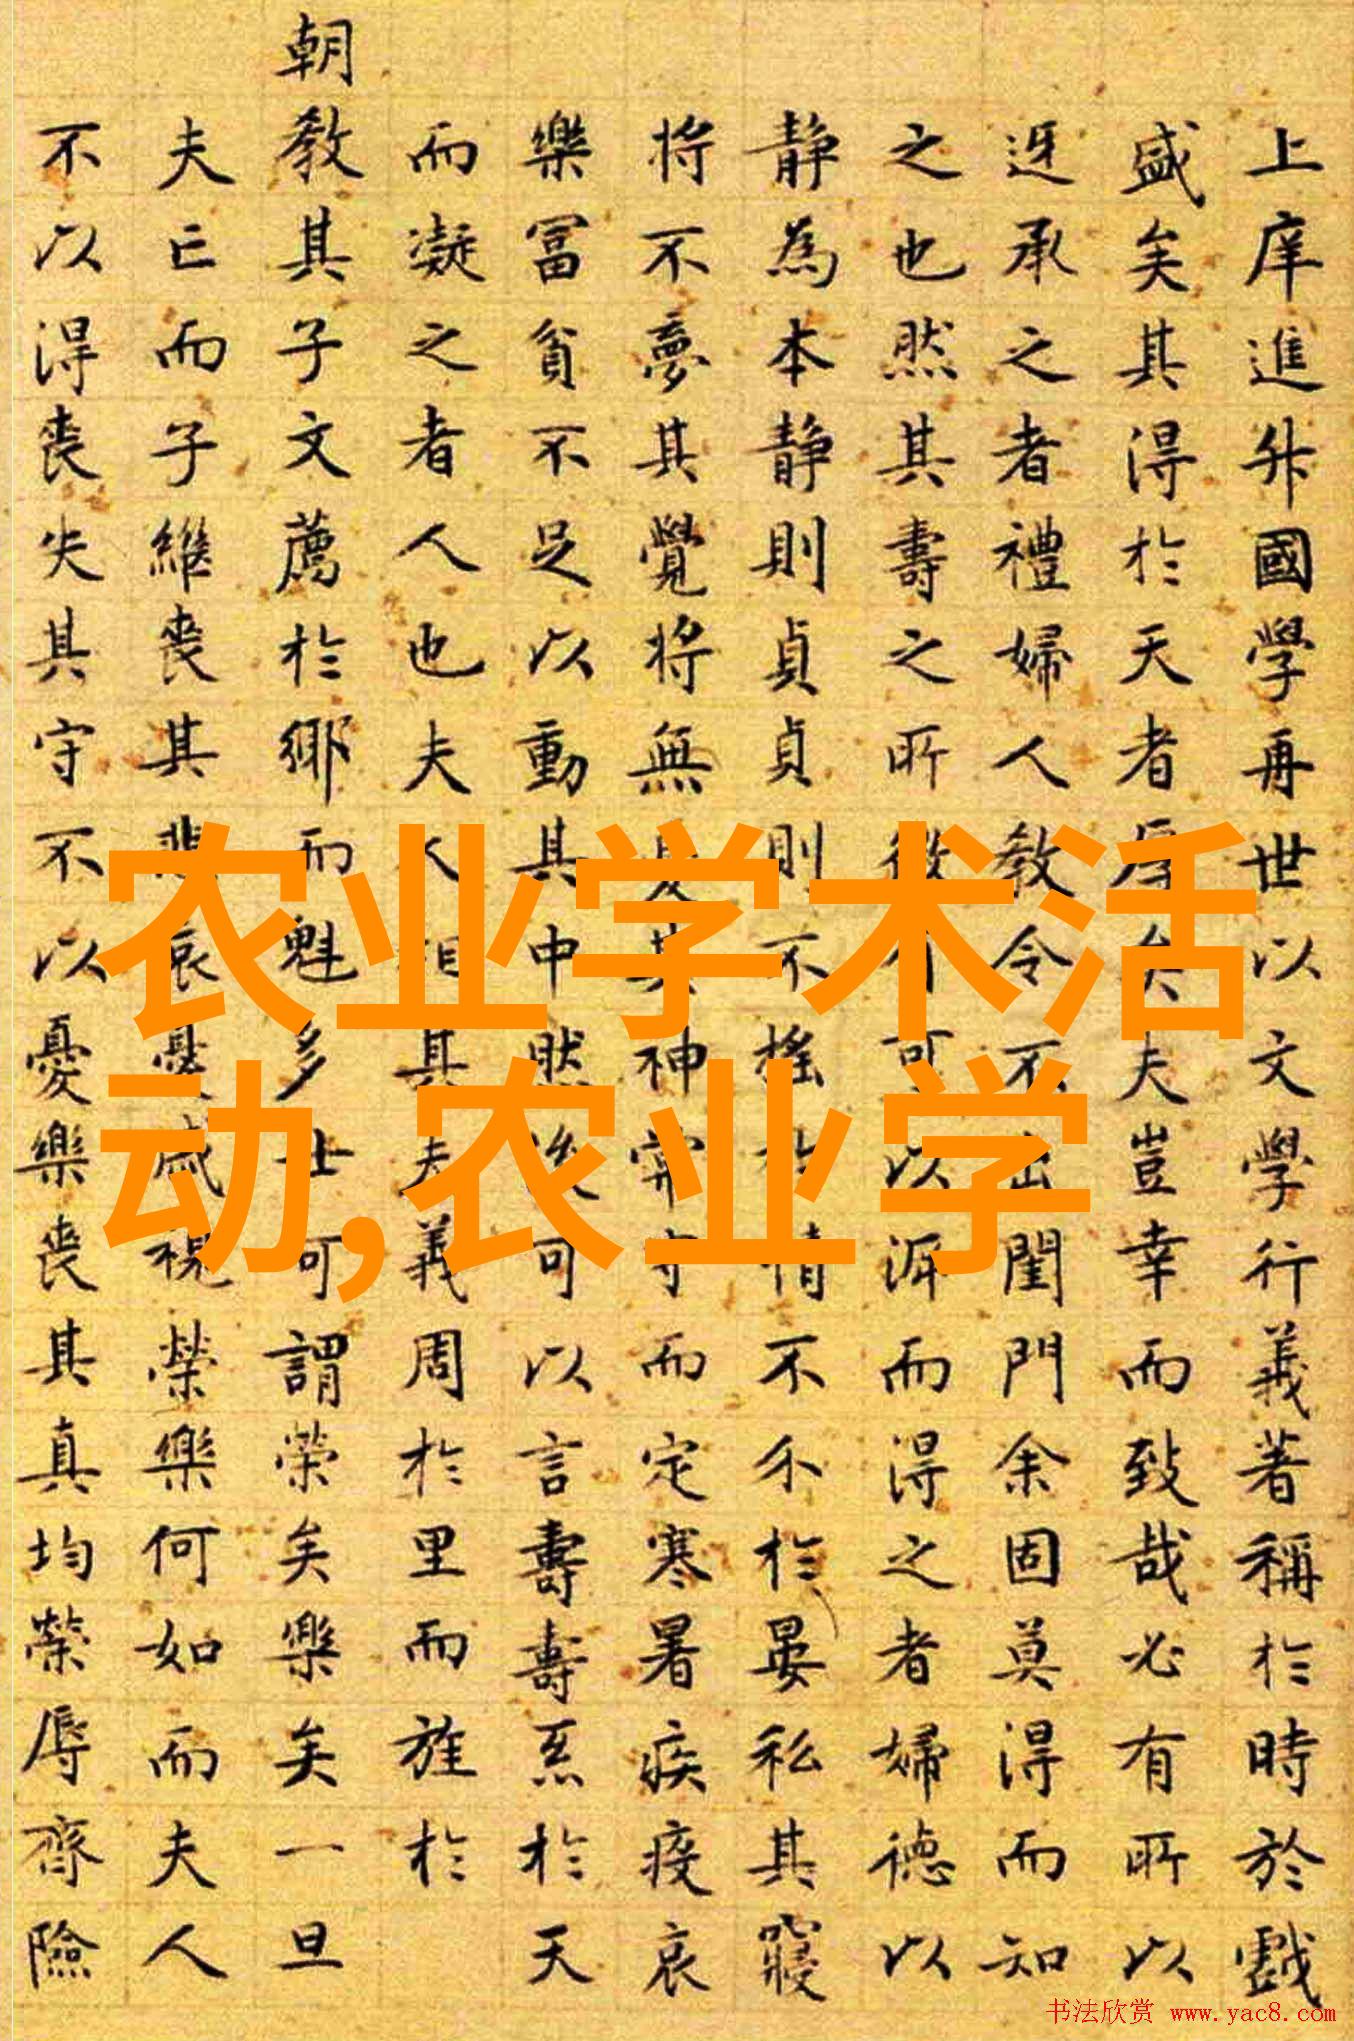 上庠進升國學再世以文學行義著稱於時於戲
盛矣其得於天者厚矣夫豈幸而致哉必有所以
迓承之者禮婦人教令不出閨門余固莫得而知
之也然其壽之所以源而得之者婦德以
静為本静則貞貞則不搖於情不尒於晏私其寢
将不夢其覺将無其神守而定寒暑疾疫哀
樂冨貧不足以動其中然後可以言壽壽烝於天
而凝之者人也夫人相其夫義周於里而旌於
朝教其子文薦於鄉而魁多士可謂荣矣樂矣一旦
夫亡而子繼丧其悲哀憂戚視榮樂何如而夫人
不以得丧失其守不以憂樂丧其真均榮辱齊險
农业学术活
动,农业学
书法欣赏 www.yac8.com